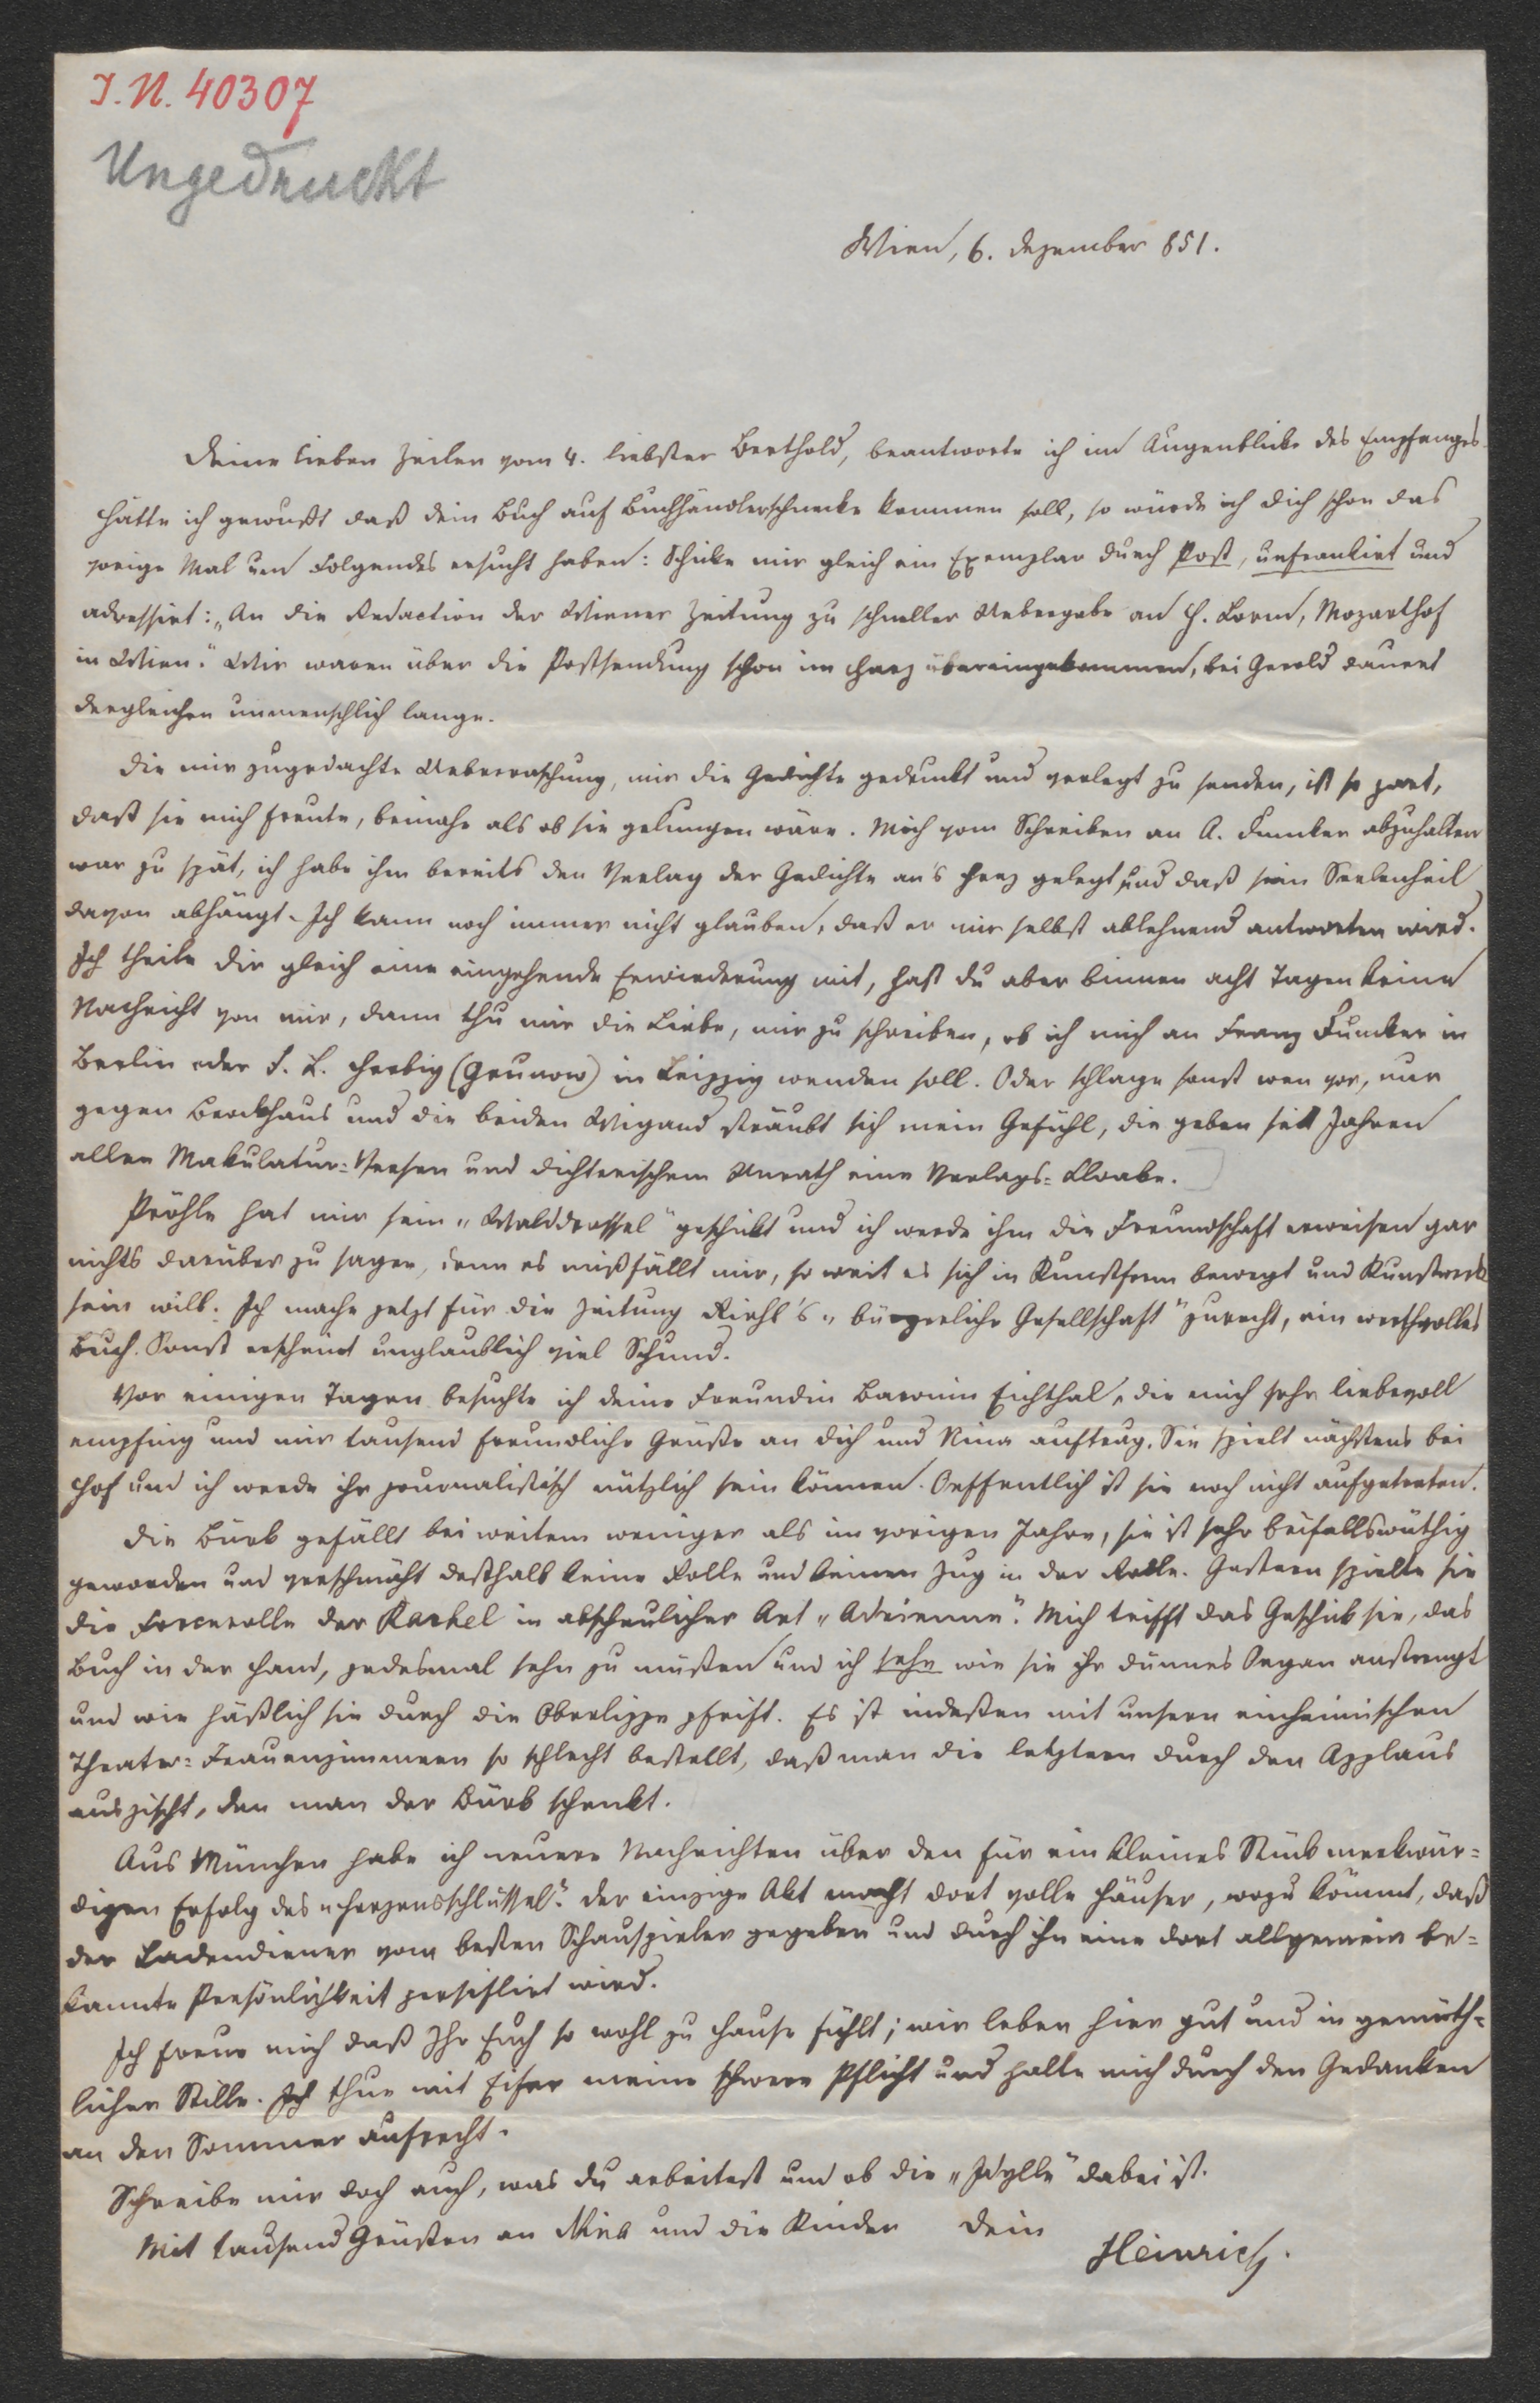 I.N. 40307
Ungedruckt
Wien, 6. Dezember 851.
Deine lieben Zeilen vom 4. liebster Berthold, beantworte ich im Augenblicke des Empfanges.
Hätte ich gewußt daß dein Buch auf Buchhändlerschnecke kommen soll, so würde ich dich schon das
vorige Mal um Folgendes ersucht haben: Schicke mir gleich ein Exemplar durch Post, unfrankirt und
adressirt: „An die Redaction der Wiener Zeitung zu schneller Uebergabe an H. Lorm, Mozarthof
in Wien." Wir waren über die Postsendung schon im Harz übereingekommen, bei Gerold dauert
dergleichen unmenschlich lange.
Die mir zugedachte Ueberraschung, mir die Gedichte gedruckt und verlegt zu senden, ist so zart,
daß sie mich freute, beinahe als ob sie gelungen wäre. Mich vom Schreiben an A. Duncker abzuhalten
war zu spät, ich habe ihm bereits den Verlag der Gedichte an's Herz gelegt und daß sein Seelenheil
davon abhängt. Ich kann noch immer nicht glauben, daß er mir selbst ablehnend antworten wird.
Ich theile dir gleich eine eingehende Erwiederung mit, hast du aber binnen acht Tagen keine
Nachricht von mir, dann thu mir die Liebe, mir zu schreiben, ob ich mich an Franz Duncker in
Berlin oder F. L. Herbig (Grunow) in Leipzig wenden soll. Oder schlage sonst wen vor, nur
gegen Brockhaus und die beiden Wigand sträubt sich mein Gefühl, die geben seit Jahren
allen Makulatur-Versen und dichterischem Unrath eine Verlags-Cloake.
Pröhle hat mir sein „Walddrossel" geschickt und ich werde ihm die Freundschaft erweisen gar
nichts darüber zu sagen, denn es mißfällt mir, so weit es sich in Kunstform bewegt und Kunstwerk
sein will. Ich mache jetzt für die Zeitung Riehl's „bürgerliche Gesellschaft" zurecht, ein werthvolles
Buch. Sonst erscheint unglaublich viel Schund.
Vor einigen Tagen besuchte ich deine Freundin Baronin Eichthal, die mich sehr liebevoll
empfing und mir tausend freundliche Grüße an dich und Nina auftrug. Sie spielt nächstens bei
Hof und ich werde ihr journalistisch nützlich sein können. Oeffentlich ist sie noch nicht aufgetreten.
Die Bürk gefällt bei weitem weniger als im vorigen Jahre, sie ist sehr beifallswüthig
geworden und verschmäht deßhalb keine Rolle und keinen Zug in der Rolle. Gestern spielte sie
die Forcerolle der Rachel in abscheulicher Art „Adrienne". Mich trifft das Geschick sie, das
Buch in der Hand, jedesmal sehn zu müßen und ich sehe wie sie ihr dünnes Organ anstrengt
und wie häßlich sie durch die Oberlippe pfeift. Es ist indeßen mit unsern einheimischen
Theater-Frauenzimmern so schlecht bestellt, daß man die letztern durch den Applaus
auszischt, den man der Bürk schenkt.
Aus München habe ich neuere Nachrichten über den für ein kleines Stück merkwür-
digen Erfolg des „Herzensschlüssel". Der einzige Akt macht dort volle Häuser, wozu kömmt, daß
der Ladendiener vom besten Schauspieler gegeben und durch ihn eine dort allgemein be-
kannte Persönlichkeit persiflirt wird.
Ich freue mich daß Ihr Euch so wohl zu Hause fühlt; wir leben hier gut und in gemüth-
licher Stille. Ich thue mit Eifer meine schwere Pflicht und halte mich durch den Gedanken
an den Sommer aufrecht.
Schreibe mir doch auch, was du arbeitest und ob die „Idylle" dabei ist.
Mit tausend Grüßen an Nina und die Kinder Dein
Heinrich.